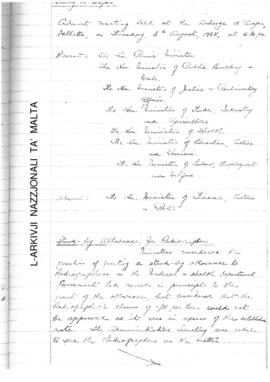 Cabinet meeting held at the Auberge d'Aragon,
Valletta, on Tuesday, 8th August, 1958, at 6.30 p.m.
Present: The Hon. Prime Minister
The Hon. Minister of Public Building &
Works.
The Hon. Minister of Justice & Parliamentary
Affairs.
The Hon. Minister of Trade, Industry
and Agriculture
The Hon. Minister of Health
The Hon. Minister of Education, Culture
and Tourism.
The Hon. Minister of Labour, Employment
and Welfare
Absent: The Hon. Minister of Finance, Customs
&
Stand-by Allowance for Radiographers
Ministers considered the
question of granting a stand-by allowance to
Radiographers in the Medical & Health Department.
Personnel had agreed in principle to the
grant of the allowance, but considered that the
Radiographer's claim of per hour could not
be approved as it was in excess of the established
rate. The Administrative Secretary was asked
to see the Radiographers on the matter.
L-ARKIVJI NAZZJONALI TA' MALTA